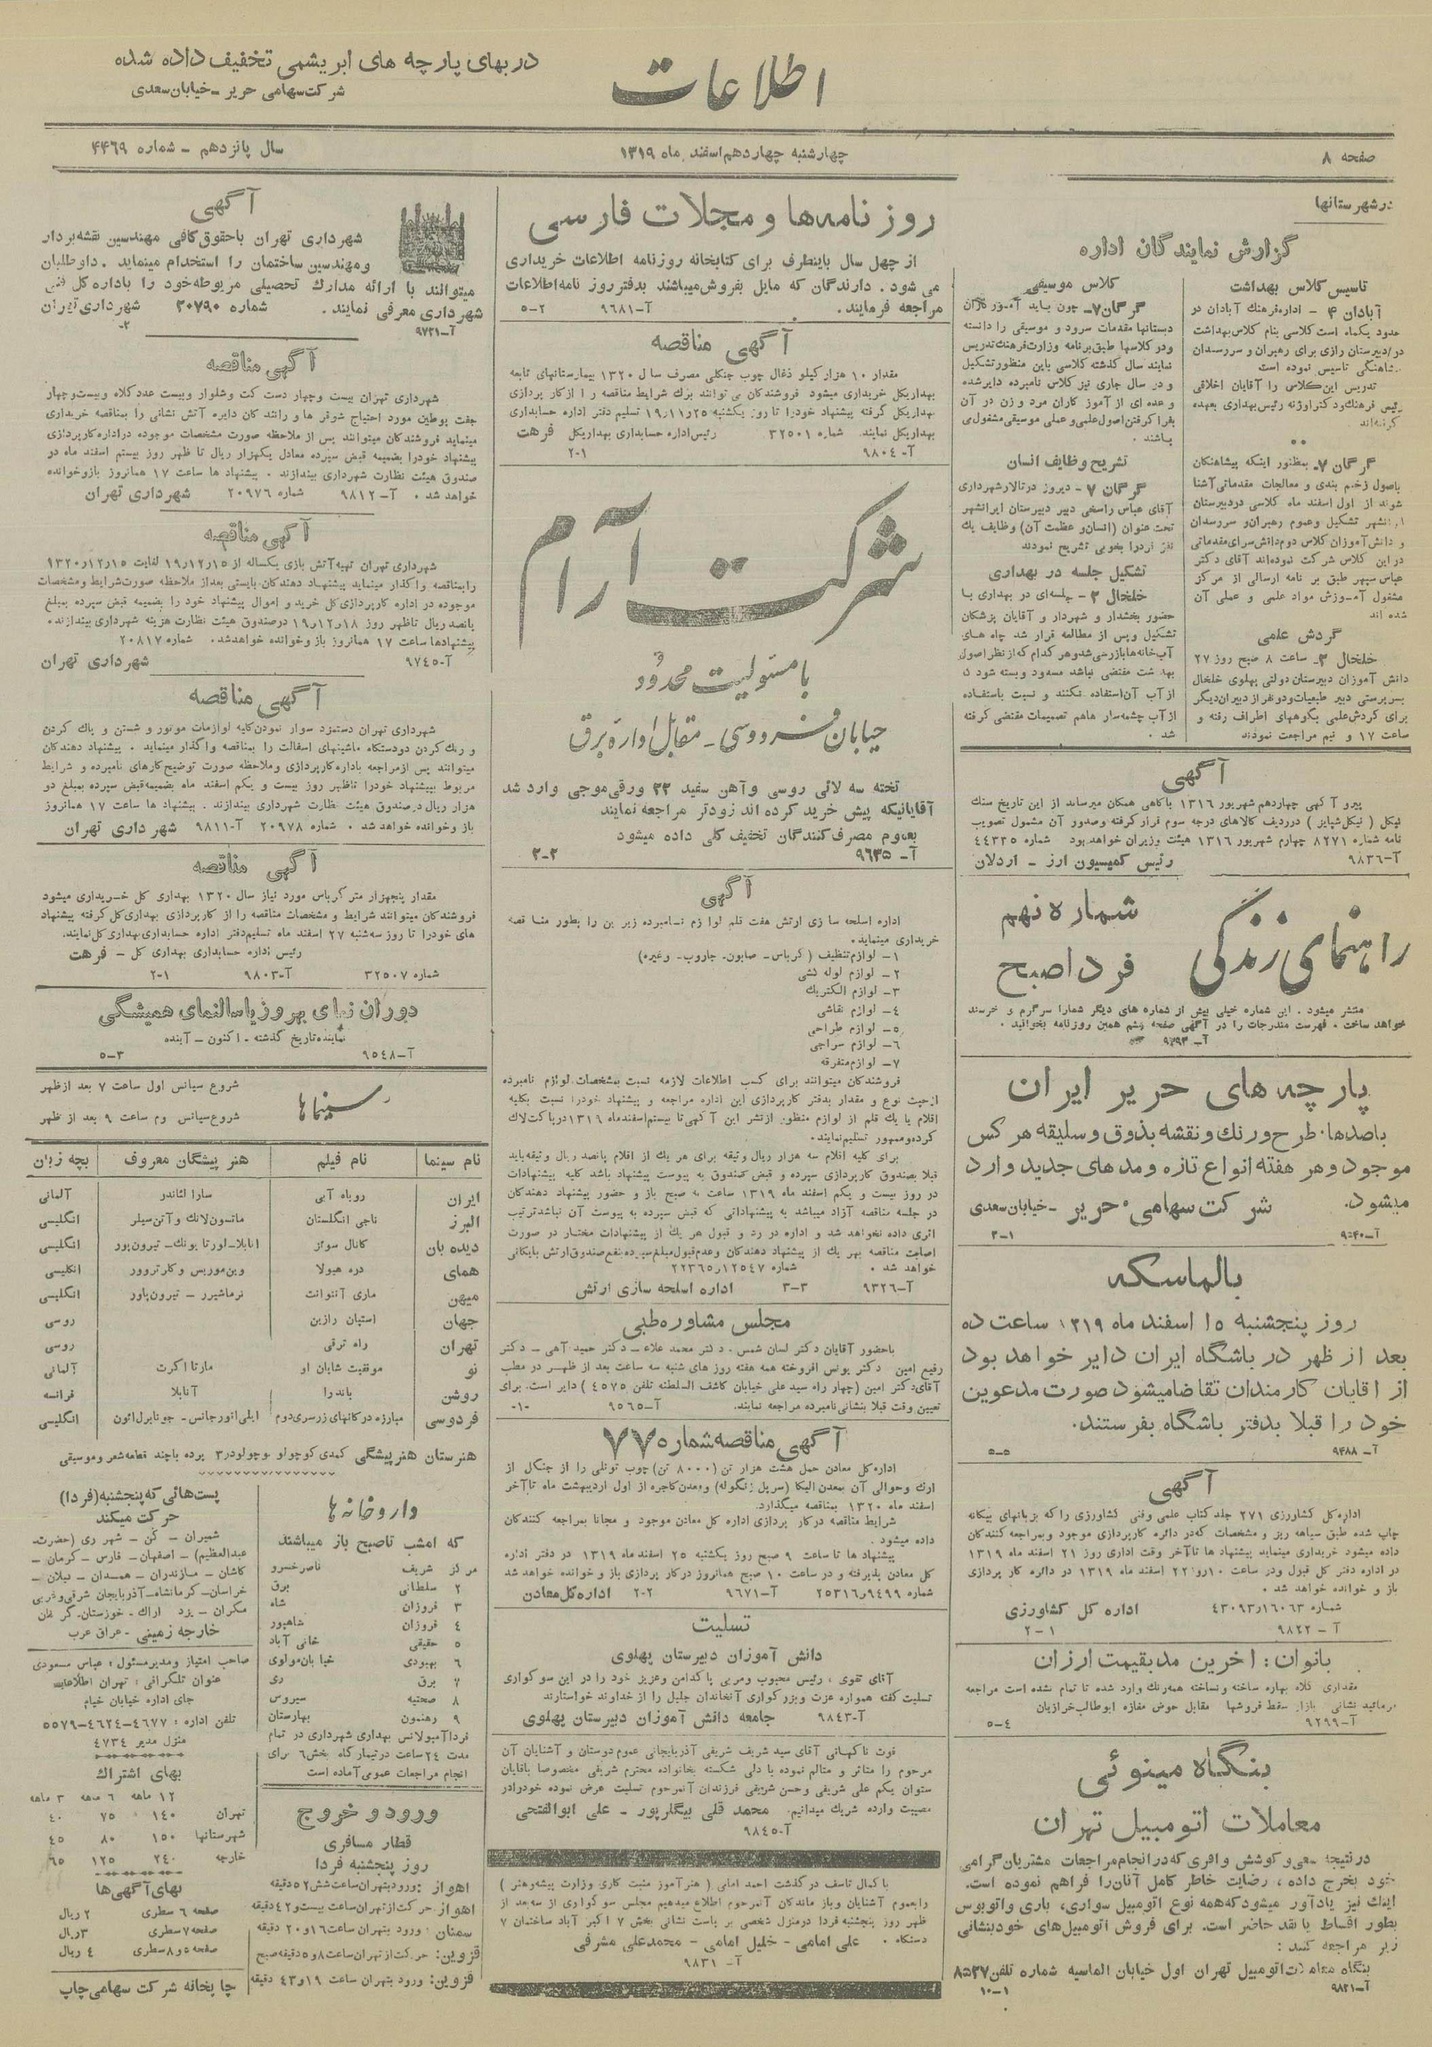 در بهای پارچه های ابریشمی تخفیف داده شده
شرکت سهامی حریر ـ خیابان سعدی
اطلاعات
صفحه ۸
چهارشنبه چهاردهم اسفند ماه ۱۳۱۹
سال پانزدهم ـ شماره ۴۴۶۹
درشهرستانها
گزارش نمایندگان اداره
تاسیس کلاس بهداشت
آبادان ۴ ـ اداره فرهنگ آبادان در
حدود یکماه است کلاسی بنام کلاس بهداشت
در دبیرستان رازی برای رهبران و سررسدان
پیشاهنگی تاسیس نموده است
تدریس این کلاس را آقایان اخلاقی
رئیس فرهنگ و دکتر اوژنه رئیس بهداری بعهده
گرفته اند
گرگان ۷ـ بمنظور اینکه پیشاهنگان
باصول زخم بندی و معالجات مقدماتی آشنا
شوند از اول اسفند ماه کلاسی دردبیرستان
ایرانشهر تشکیل وعموم رهبران و سررسدان
و دانش آموزان کلاس دوم دانش سرای مقدماتی
در این کلاس شرکت نموده اند آقای دکتر
عباس سپهر طبق بر نامه ارسالی از مرکز
مشغول آموزش مواد علمی و عملی آن
شده اند
گردش علمی
خلخال ۳ـ ساعت ۸ صبح روز ۲۷
دانش آموزان دبیرستان دولتی پهلوی خلخال
بسرپرستی دبیر طبیعیات و دو نفر از دبیران دیگر
برای گردش علمی بکوههای اطراف رفته و
ساعت ۱۷ و نیم مراجعت نمودند
کلاس موسیقی
گرگان ۷ـ چون باید آموزگاران
دبستانها مقدمات سرود و موسیقی را دانسته
ودر کلاسها طبق برنامه وزارت فرهنگ تدریس
نمایند سال گذشته کلاسی باین منظور تشکیل
و در سال جاری نیز کلاس نامبرده دایر شده
و عده ای از آموز کاران مرد و زن در آن
بفرا گرفتن اصول علمی و عملی موسیقی مشغول می
باشند .
تشریح وظایف انسان
گرگان ۷ ـ دیروز در تالار شهرداری
آقای عباس راسخی دبیر دبیرستان ایرانشهر
تحت عنوان (انسان و عظمت آن) وظایف یک
نفر فرد را بخوبی تشریح نمودند
تشکیل جلسه در بهداری
خلخال ۳ ـ جلسه ای در بهداری با
حضور بخشدار و شهردار و آقایان پزشکان
تشکیل و پس از مطالعه قرار شد چاه های
آب خانه ها بازرسی شد و هر کدام که از نظر اصول
بهداشت مقتضی نباشد مسدود وبسته شود تا
از آب آن استفاده نکنند و نسبت باستفاده
از آب چشمه سار هاهم تصمیمات مقتضی گرفته
شد .
آگهی
پیرو آگهی چهاردهم شهریور ۱۳۱۶ باگاهی همگان میرساند از این تاریخ سنگ
نیکل ( نیکل شپایز ) در ردیف کالاهای درجه سوم قرار گرفته وصدور آن مشمول تصویب
نامه شماره ۸۲۷۱ چهارم شهریور ۱۳۱۶ هیئت وزیران خواهد بود شماره ۴۴۳۳۵
آ-۹۸۳۶ رئیس کمیسیون ارز ـ اردلان
راهنمای زندگی
شماره نهم
فردا صبح
منتشر میشود . این شماره خیلی بیش از شماره های دیگر شمارا سرگرم و خرسند
خواهد ساخت . فهرست مندرجات را در آگهی صفحه ششم همین روزنامه بخوانید .
پارچه های حریر ایران
باصدها طرح و رنگ و نقشه بذوق و سلیقه هر کس
موجود وهر هفته انواع تازه و مدهای جدید وارد
میشود. شرکت سهامی حریر ـ خیابان سعدی
۲-۱
بالماسکه
روز پنجشنبه ۱۵ اسفند ماه ۱۳۱۹ ساعت ده
بعد از ظهر در باشگاه ایران دایر خواهد بود
از اقایان کارمندان تقاضا میشود صورت مدعوین
خود را قبلا بدفتر باشگاه بفرستند.
آ- ۹۴۸۸ ۵-۵
آگهی
اداره کل کشاورزی ۲۷۱ جلد کتاب علمی وفنی کشاورزی را که بزبانهای بیگانه
چاپ شده طبق سیاهه ریز و مشخصات که در دائره کارپردازی موجود وبمراجعه کنندگان
داده میشود خریداری مینماید پیشنهاد ها تا آخر وقت اداری روز ۲۱ اسفند ماه ۱۳۱۹
در اداره دفتر کل قبول ودر ساعت ۱۰ روز ۲۲ اسفند ماه ۱۳۱۹ در دائره کار پردازی
باز و خوانده خواهد شد .
شماره ۴۳۰۹۳ر۱۶۰۶۳ اداره کل کشاورزی
آ - ۹۸۲۲ ۲-۱
بانوان : اخرین مد بقیمت ارزان
مقداری کلاه بهاره ساخته ونساخته همه رنگ وارد شده تا تمام نشده است مراجعه
فرمائید نشانی بازار سقط فروشها مقابل حوض مغازه ابوطالب خرازیان
آ-۹۲۹۹ ۵-۴
بنگاه مینوئی
معاملات اتومبیل تهران
در نتیجه سعی و کوشش وافری که در انجام مراجعات مشتریان گرامی
خود بخرج داده ، رضایت خاطر کامل آنان را فراهم نموده است.
اینک نیز یاد آور میشود که همه نوع اتومبیل سواری، باری و اتوبوس
بطور اقساط یا نقد حاضر است. برای فروش اتومبیل های خود بنشانی
زیر مراجعه کنید :
بنگاه معاملات اتومبیل تهران اول خیابان الماسیه شماره تلفن ۸۵۲۷
آ-۹۸۲۱ ۱۰-۱
روزنامه ها و مجلات فارسی
از چهل سال باینطرف برای کتابخانه روزنامه اطلاعات خریداری
می شود . دارندگان که مایل بفروش میباشند بدفتر روز نامه اطلاعات
مراجعه فرمایند. آ-۹۶۸۱ ۵-۲
آگهی مناقصه
مقدار ۱۰ هزار کیلو ذغال چوب جنگلی مصرف سال ۱۳۲۰ بیمارستانهای تابعه
بهداریکل خریداری میشود فروشندگان می توانند برک شرایط مناقصه را از کار پردازی
بهداریکل گرفته پیشنهاد خودرا تا روز یکشنبه ۲۵ر۱۱ر۱۹ تسلیم دفتر اداره حسابداری
بهداریکل نمایند. شماره ۳۲۵۰۱ رئیس اداره حسابداری بهداریکل فرهت
آ- ۹۸۰۴ ۲-۱
شرکت آرام
با مسئولیت محدود
خیابان فردوسی ـ مقابل اداره برق
تخته سه لائی روسی و آهن سفید ۲۲ ورقی موجی وارد شد
آقایانیکه پیش خرید کرده اند زودتر مراجعه نمایند
بعموم مصرف کنندگان تخفیف کلی داده میشود
آ- ۹۶۳۵ ۳-۲
آگهی
اداره اسلحه سازی ارتش هفت قلم لوازم نامبرده زیرین را بطور مناقصه
خریداری مینماید.
۱- لوازم تنظیف ( کرباس- صابون- جاروب- وغیره)
۲- لوازم لوله کشی
۳- لوازم الکتریک
۴- لوازم نقاشی
۵- لوازم طراحی
۶- لوازم سراجی
۷- لوازم متفرقه
فروشندکان میتوانند برای کسب اطلاعات لازمه نسبت بمشخصات لوازم نامبرده
از حیث نوع و مقدار بدفتر کارپردازی این اداره مراجعه و پیشنهاد خودرا نسبت بکلیه
اقلام یا یک قلم از لوازم منظور از نشر این آگهی تا بیستم اسفندماه ۱۳۱۹ در پاکت لاک
کرده و ممهور تسلیم نمایند.
برای کلیه اقلام سه هزار ریال وثیقه برای هر یک از اقلام پانصد ریال وثیقه باید
قبلا بصندوق کارپردازی سپرده و قبض صندوق به پیوست پیشنهاد باشد کلیه پیشنهادات
در روز بیست و یکم اسفند ماه ۱۳۱۹ ساعت ده صبح باز و حضور پیشنهاد دهندکان
در جلسه مناقصه آزاد میباشد به پیشنهاداتی که قبض سپرده به پیوست آن نباشد ترتیب
اثری داده نخواهد شد و اداره در رد و قبول هر یک از پیشنهادات مختار در صورت
اصابت مناقصه بهر یک از پیشنهاد دهندکان وعدم قبول مبلغ سپرده بنفع صندوق ارتش بایگانی
خواهد شد . شماره ۱۲۵۴۷ر۲۲۳۶۵
آ-۹۳۲۶ ۳-۳ اداره اسلحه سازی ارتش
مجلس مشاوره طبی
باحضور آقایان دکتر لسان شمس - دکتر محمد علاء - دکتر حمید آهی - دکتر
رفیع امین دکتر یونس افروخته همه هفته روز های شنبه سه ساعت بعد از ظهر در مطب
آقای دکتر امین (چهار راه سید علی خیابان کاشف السلطنه تلفن ۴۵۷۵) دایر است. برای
تعیین وقت قبلا بنشانی نامبرده مراجعه نمایند. آ-۹۵۶۵ -۱-
آگهی مناقصه شماره ۷۷
اداره کل معادن حمل هشت هزار تن (۸۰۰۰ تن) چوب تونلی را از جنگل از
ارک وحوالی آن بمعدن الیکا (سرپل زنگوله) ومعدن گاجره از اول اردیبهشت ماه تا آخر
اسفند ماه ۱۳۲۰ بمناقصه میگذارد.
شرایط مناقصه در کار پردازی اداره کل معادن موجود و مجانا بمراجعه کنندگان
داده میشود.
پیشنهاد ها تا ساعت ۹ صبح روز یکشنبه ۲۵ اسفند ماه ۱۳۱۹ در دفتر اداره
کل معادن پذیرفته و در ساعت ۱۰ صبح همانروز در کار پردازی باز و خوانده خواهد شد
شماره ۹۴۹۹ر۲۵۳۱۶ آ-۹۶۷۱ ۲-۲ اداره کل معادن
تسلیت
دانش آموزان دبیرستان پهلوی
آقای تقوی ، رئیس محبوب ومربی پاکدامن وعزیز خود را در این سوکواری
تسلیت گفته همواره عزت و بزرگواری آنخاندان جلیل را از خداوند خواستارند
آ-۹۸۴۳ جامعه دانش آموزان دبیرستان پهلوی
فوت ناگهانی آقای سید شریف شریفی آذربایجانی عموم دوستان و آشنایان آن
مرحوم را متاثر و متالم نموده با دلی شکسته بخانواده محترم شریفی مخصوصا باقایان
ستوان یکم علی شریفی وحسن شریفی فرزندان آنمرحوم تسلیت عرض نموده خودرادر
مصیبت وارده شریک میدانیم. محمد قلی بیگلرپور ـ علی ابوالفتحی
آ-۹۸۴۵
با کمال تاسف در گذشت احمد امامی ( هنر آموز منبت کاری وزارت پیشه وهنر )
را بعموم آشنایان وباز ماندکان آنمرحوم اطلاع میدهیم مجلس سوگواری از سه بعد از
ظهر روز پنجشنبه فردا درمنزل شخصی بر پاست نشانی بخش ۷ اکبر آباد ساختمان ۷
دستگاه . علی امامی - خلیل امامی - محمدعلی مشرفی
آ- ۹۸۳۱
آگهی
شهرداری تهران باحقوق کافی مهندسین نقشه بردار
ومهندسین ساختمان را استخدام مینماید . داوطلبان
میتوانند با ارائه مدارک تحصیلی مربوطه خود را باداره کل فنی
شهرداری معرفی نمایند. شماره ۲۰۷۹۰ شهرداری تهران
آ-۹۷۲۱
آگهی مناقصه
شهرداری تهران بیست وچهار دست کت وشلوار وبیست عدد کلاه وبیست وچهار
جفت پوطین مورد احتیاج شوفر ها و رانند گان دایره آتش نشانی را بمناقصه خریداری
مینماید فروشندگان میتوانند پس از ملاحظه صورت مشخصات موجوده در اداره کارپردازی
پیشنهاد خودرا بضمیمه قبض سپرده معادل یکهزار ریال تا ظهر روز بیستم اسفند ماه در
صندوق هیئت نظارت شهرداری بیندازند . پیشنهاد ها ساعت ۱۷ همانروز باز و خوانده
خواهد شد . آ-۹۸۱۲ شماره ۲۰۹۷۶ شهرداری تهران
آگهی مناقصه
شهرداری تهران تهیه آتش بازی یکساله از ۱۵ر۱۲ر۱۹ لغایت ۱۵ر۱۲ر۱۳۲۰
را بمناقصه واگذار مینماید پیشنهاد دهندکان بایستی بعد از ملاحظه صورت شرایط و مشخصات
موجوده در اداره کارپردازی کل خرید و اموال پیشنهاد خود را بضمیمه قبض سپرده بمبلغ
پانصد ریال تا ظهر روز ۱۸ر۱۲ر۱۹ درصندوق هیئت نظارت هزینه شهرداری بیندازند.
پیشنهادها ساعت ۱۷ همانروز باز وخوانده خواهد شد. شماره ۲۰۸۱۷
آ-۹۷۴۵ شهرداری تهران
آگهی مناقصه
شهرداری تهران دستمزد سوار نمودن کلیه لوازمات موتور و شستن و پاک کردن
و رنگ کردن دودستگاه ماشینهای اسفالت را بمناقصه واگذار مینماید . پیشنهاد دهندکان
میتوانند پس از مراجعه باداره کارپردازی وملاحظه صورت توضیح کارهای نامبرده و شرایط
مربوط پیشنهاد خودرا تا ظهر روز بیست و یکم اسفند ماه بضمیمه قبض سپرده بمبلغ دو
هزار ریال در صندوق هیئت نظارت شهرداری بیندازند . پیشنهاد ها ساعت ۱۷ همانروز
باز وخوانده خواهد شد . شماره ۲۰۹۷۸ آ-۹۸۱۱ شهرداری تهران
آگهی مناقصه
مقدار پنجهزار متر کرباس مورد نیاز سال ۱۳۲۰ بهداری کل خریداری میشود
فروشندکان میتوانند شرایط و مشخصات مناقصه را از کارپردازی بهداری کل گرفته پیشنهاد
های خودرا تا روز سه شنبه ۲۷ اسفند ماه تسلیم دفتر اداره حسابداری بهداری کل نمایند.
رئیس اداره حسابداری بهداری کل - فرهت
شماره ۳۲۵۰۷ آ-۹۸۰۳ ۲-۱
دوران نمای بهروز یا سالنمای همیشگی
نماینده تاریخ گذشته - اکنون - آینده
آ-۹۵۴۸ ۵-۳
سینماها
شروع سیانس اول ساعت ۷ بعد از ظهر
شروع سیانس دوم ساعت ۹ بعد از ظهر
نام سینما نام فیلم هنرپیشگان معروف بچه زبان
ایران روباه آبی سارا لئاندر آلمانی
البرز ناجی انگلستان ماتسون لانک وآتن سیلر انگلیسی
دیده بان کانال سوئز انابلا- لورتا یونک- تیرون پور انگلیسی
همای دره هیولا وین موریس و کلرتروور انگلیسی
میهن ماری آنتوانت نرماشیرر - تیرون پاور انگلیسی
جهان استپان رازین روسی
تهران راه ترقی روسی
نو موفقیت شایان او مارتا اگرت آلمانی
روشن باندرا آنابلا فرانسه
فردوسی مبارزه در کانهای زر سری دوم انگلیسی
هنرستان هنرپیشگی کمدی کوچولو موچولو در۳ پرده باچند قطعه شعر وموسیقی
داروخانه ها
که امشب تا صبح باز میباشند
مرکز شریف ناصر خسرو
۲ سلطانی برق
۳ فروزان شاه
۴ فروزان شاهپور
۵ حقیقی خانی آباد
۶ بهبودی خیابان مولوی
۷ برق ری
۸ صحتیه سیروس
۹ رهنمون بهارستان
فردا آمبولانس بهداری شهرداری در تمام
مدت ۲۴ ساعت درتیمارگاه بخش ۶ برای
انجام مراجعات عمومی آماده است
ورود و خروج
قطار مسافری
روز پنجشنبه فردا
اهواز : ورود بتهران ساعت شش و ۵۲ دقیقه
اهواز حرکت از تهران ساعت بیست و ۴۲ دقیقه
سمنان : ورود بتهران ساعت ۱۶ و ۲۰ دقیقه
قزوین: حرکت از تهران ساعت ۸ و ۵ دقیقه صبح
قزوین: ورود بتهران ساعت ۱۹ و ۴۳ دقیقه
پست هائی که پنجشنبه (فردا)
حرکت میکند
شمیران - کن - شهر ری (حضرت
عبدالعظیم) - اصفهان - فارس - کرمان -
کاشان - مازندران - همدان - گیلان -
خراسان- کرمانشاه- آذربایجان شرقی و غربی
مکران - یزد اراک- خوزستان- گرگان
خارجه زمینی - عراق عرب
صاحب امتیاز و مدیر مسئول : عباس مسعودی
عنوان تلگرافی : تهران اطلاعات
جای اداره خیابان خیام
تلفن اداره : ۴۶۷۷-۴۶۲۴-۵۵۷۹
منزل مدیر ۴۷۳۴
بهای اشتراک
۱۲ ماهه ۶ ماهه ۳ ماهه
تهران ۱۴۰ ۷۵ ۴۰
شهرستانها ۱۵۰ ۸۰ ۴۵
خارجه ۲۴۰ ۱۲۵ ۶۵
بهای آگهی ها
صفحه ۶ سطری ۲ ریال
صفحه ۷ سطری ۳ ریال
صفحه ۵و۸ سطری ۴ ریال
چاپخانه شرکت سهامی چاپ